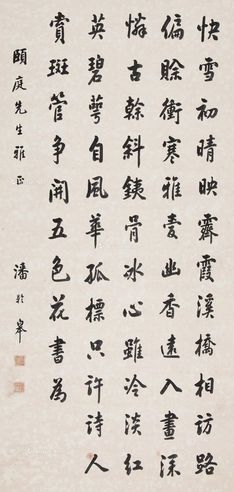 快雪初晴映霽霞溪橋相訪路
偏賒衝寒雅愛幽香遠入畫深
憐古榦斜鐵骨冰心雖冷淡紅
英碧萼自風華孤標只許詩人
賞斑管爭開五色花書為
頤庭先生雅正
潘齡皋